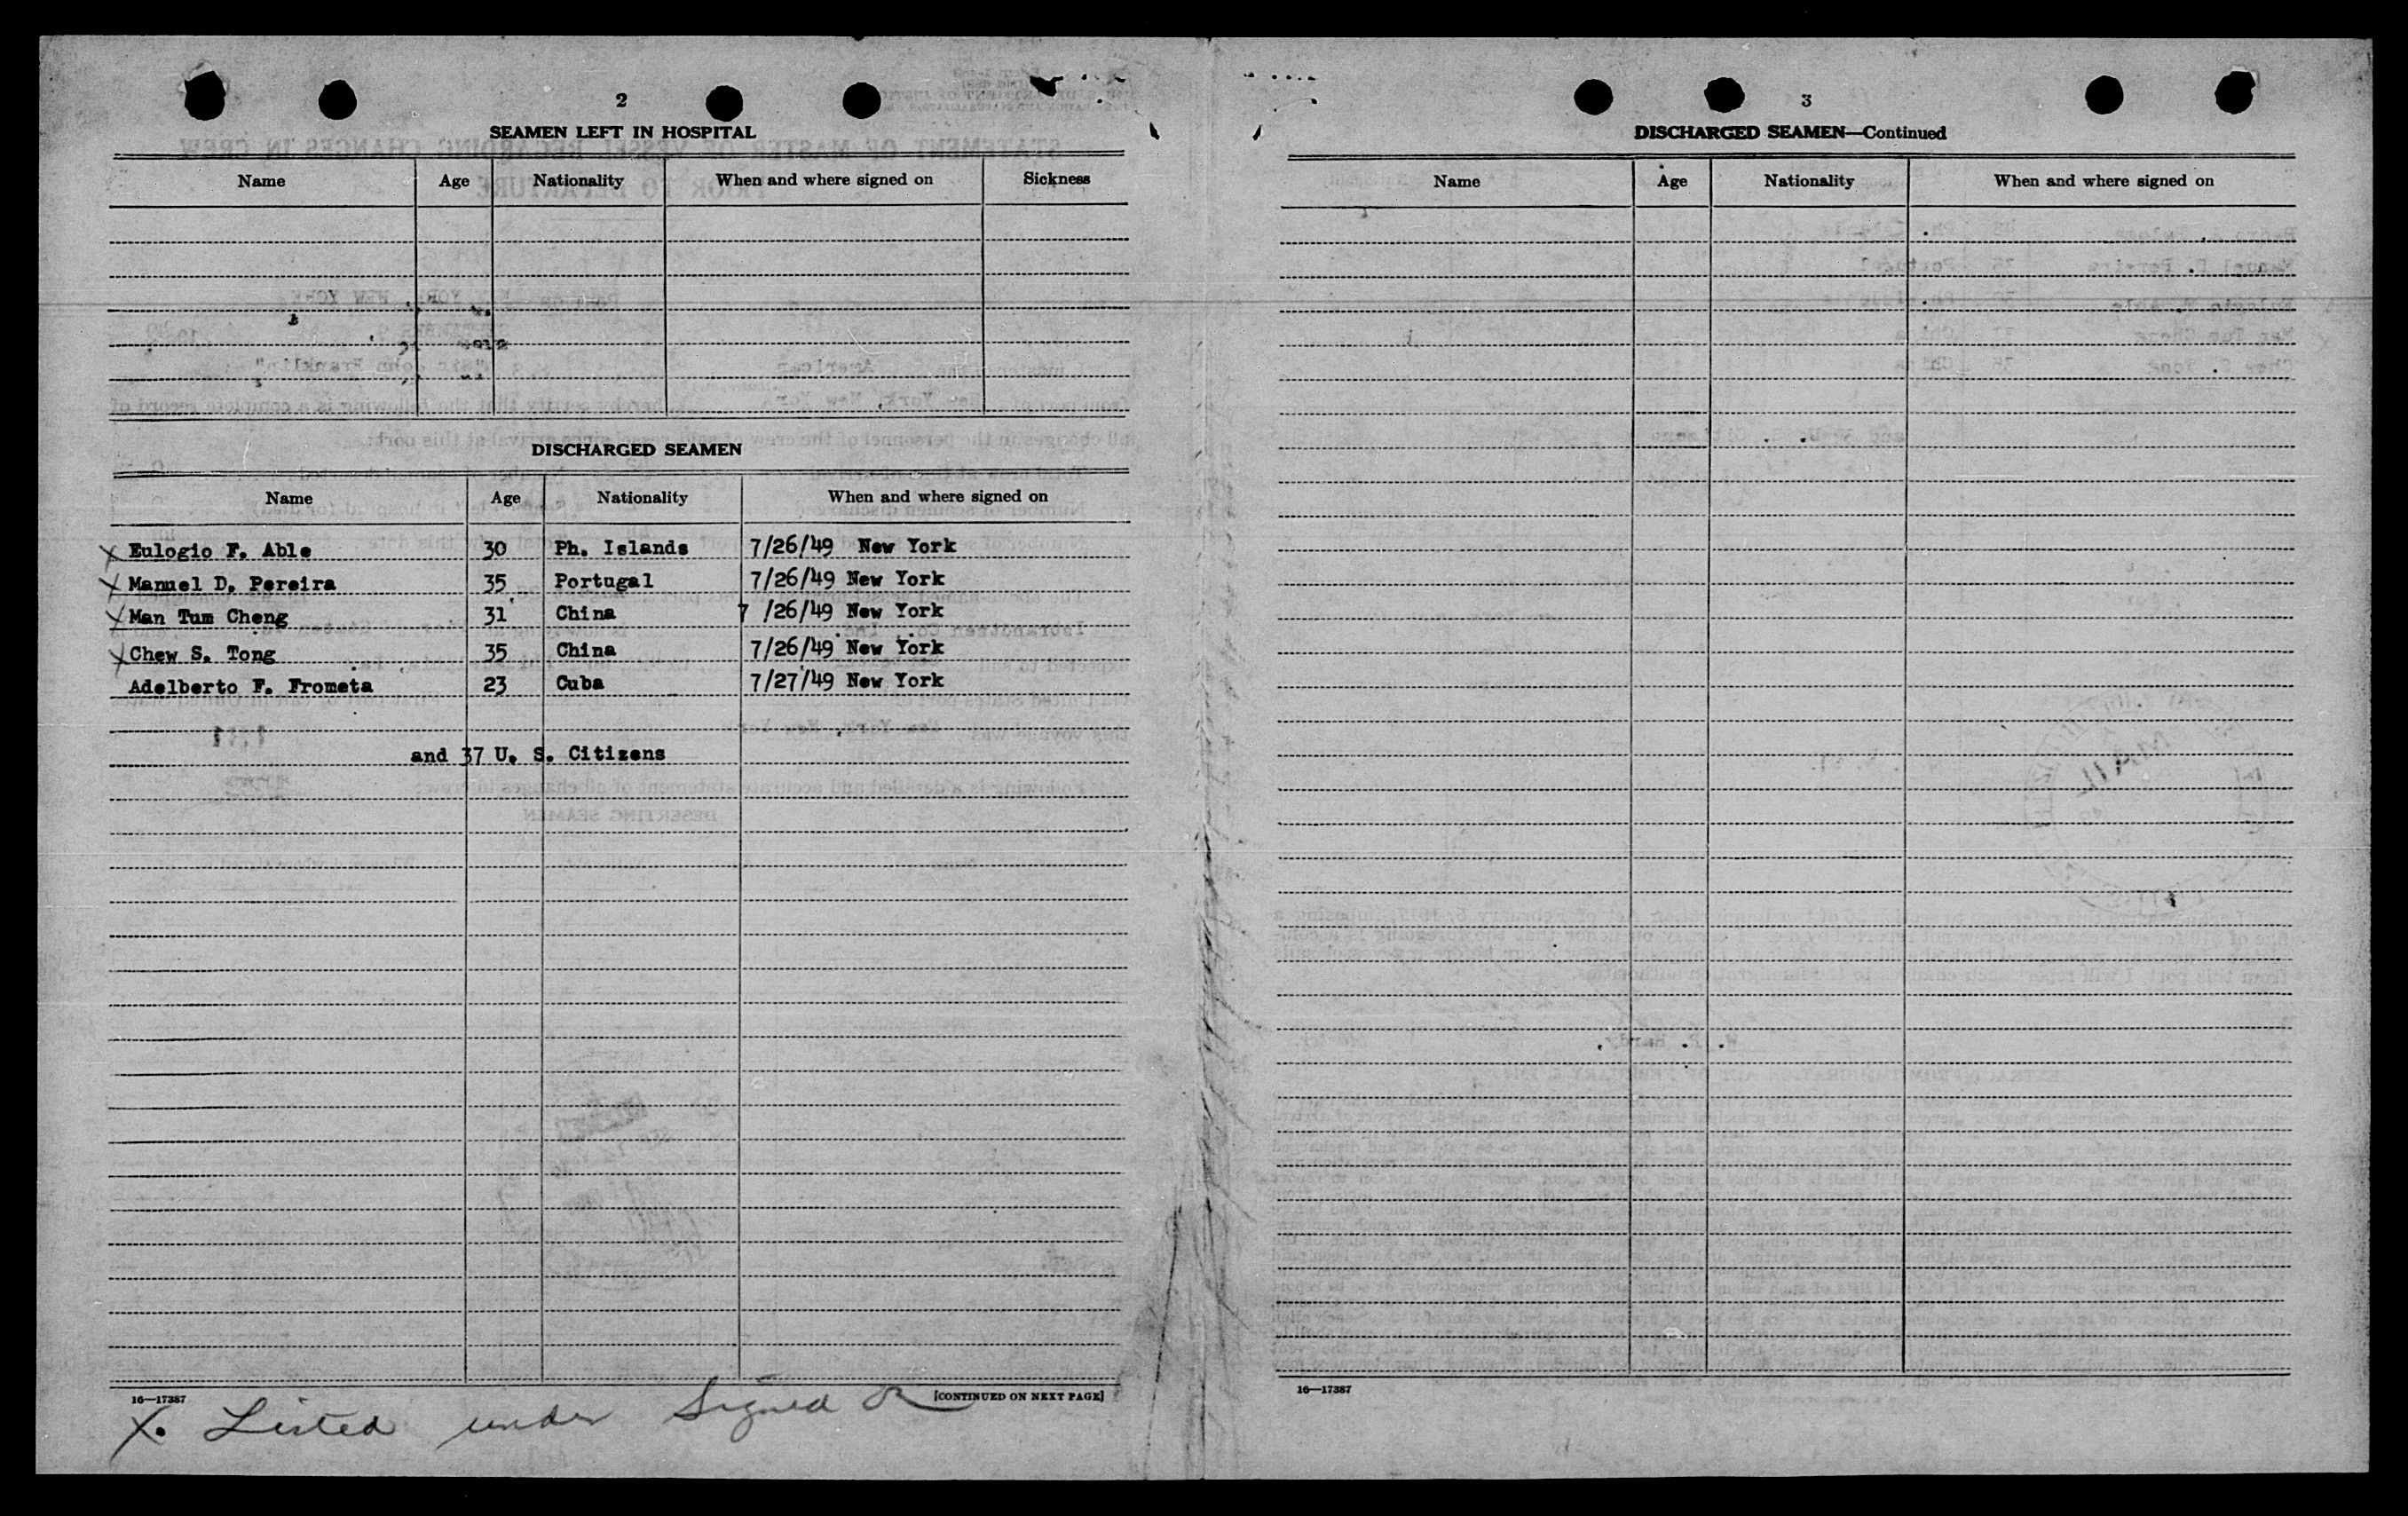 2
SEAMEN LEFT IN HOSPITAL
Name Age Nationality When and where signed on Sickness
DISCHARGED SEAMEN
Name Age Nationality When and where signed on
X Eulogio F. Able 30 Ph. Islands 7/26/49 New York
X Manuel D. Pereira 35 Portugal 7/26/49 New York
X Man Tum Cheng 31 China 7 /26/49 New York
X Chew S. Tong 35 China 7/26/49 New York
Adelberto F. Frometa 23 Cuba 7/27/49 New York
and 37 U. S. Citizens
16—17387 [CONTINUED ON NEXT PAGE]
X. Listed under Signed on
3
DISCHARGED SEAMEN—Continued
Name Age Nationality When and where signed on
16—17387